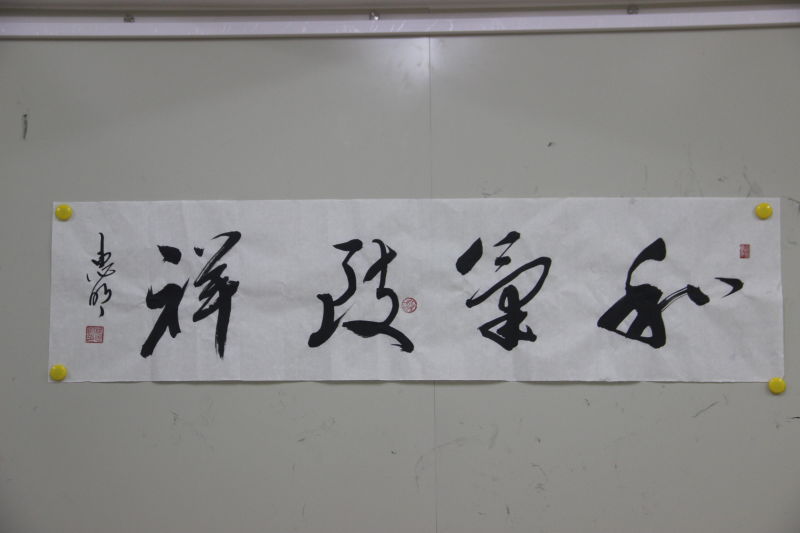 和氣致祥
惠明